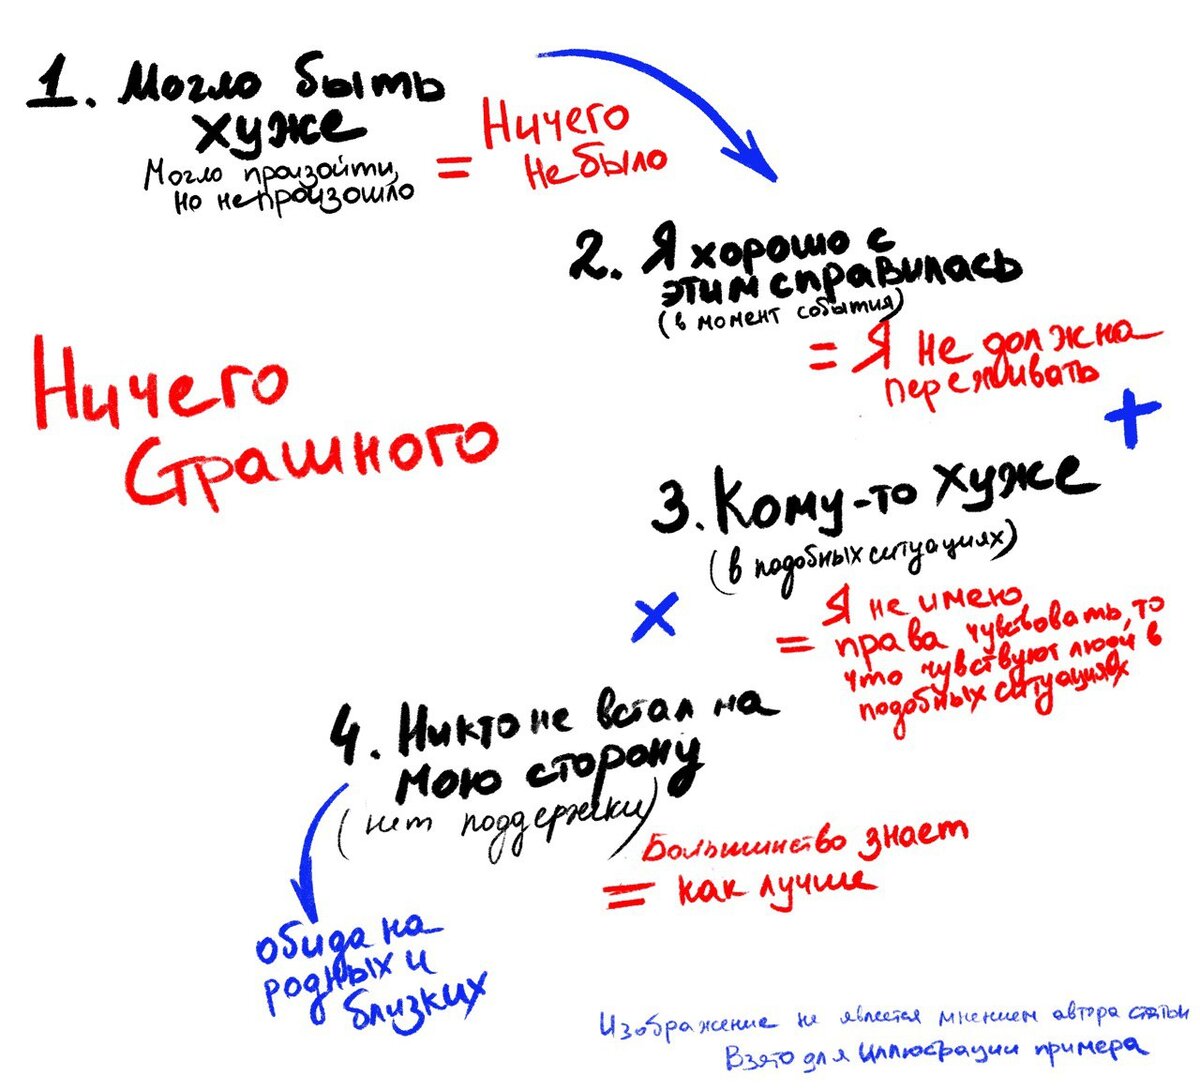 1. Могло быть
хуже
Могло произойти,
но не произошло
= Ничего
не было
2. Я хорошо с
этим справилась
(в момент события)
= Я не должна
переживать
+
Ничего
Страшного
3. Кому-то хуже
(в подобных ситуациях)
= Я не имею
права чувствовать, то
что чувствуют люди в
подобных ситуациях
×
4. Никто не встал на
мою сторону
(нет поддержки)
= Большинство знает
как лучше
обида на
родных и
близких
Изображение не является мнением автора статьи
Взято для иллюстрации примера